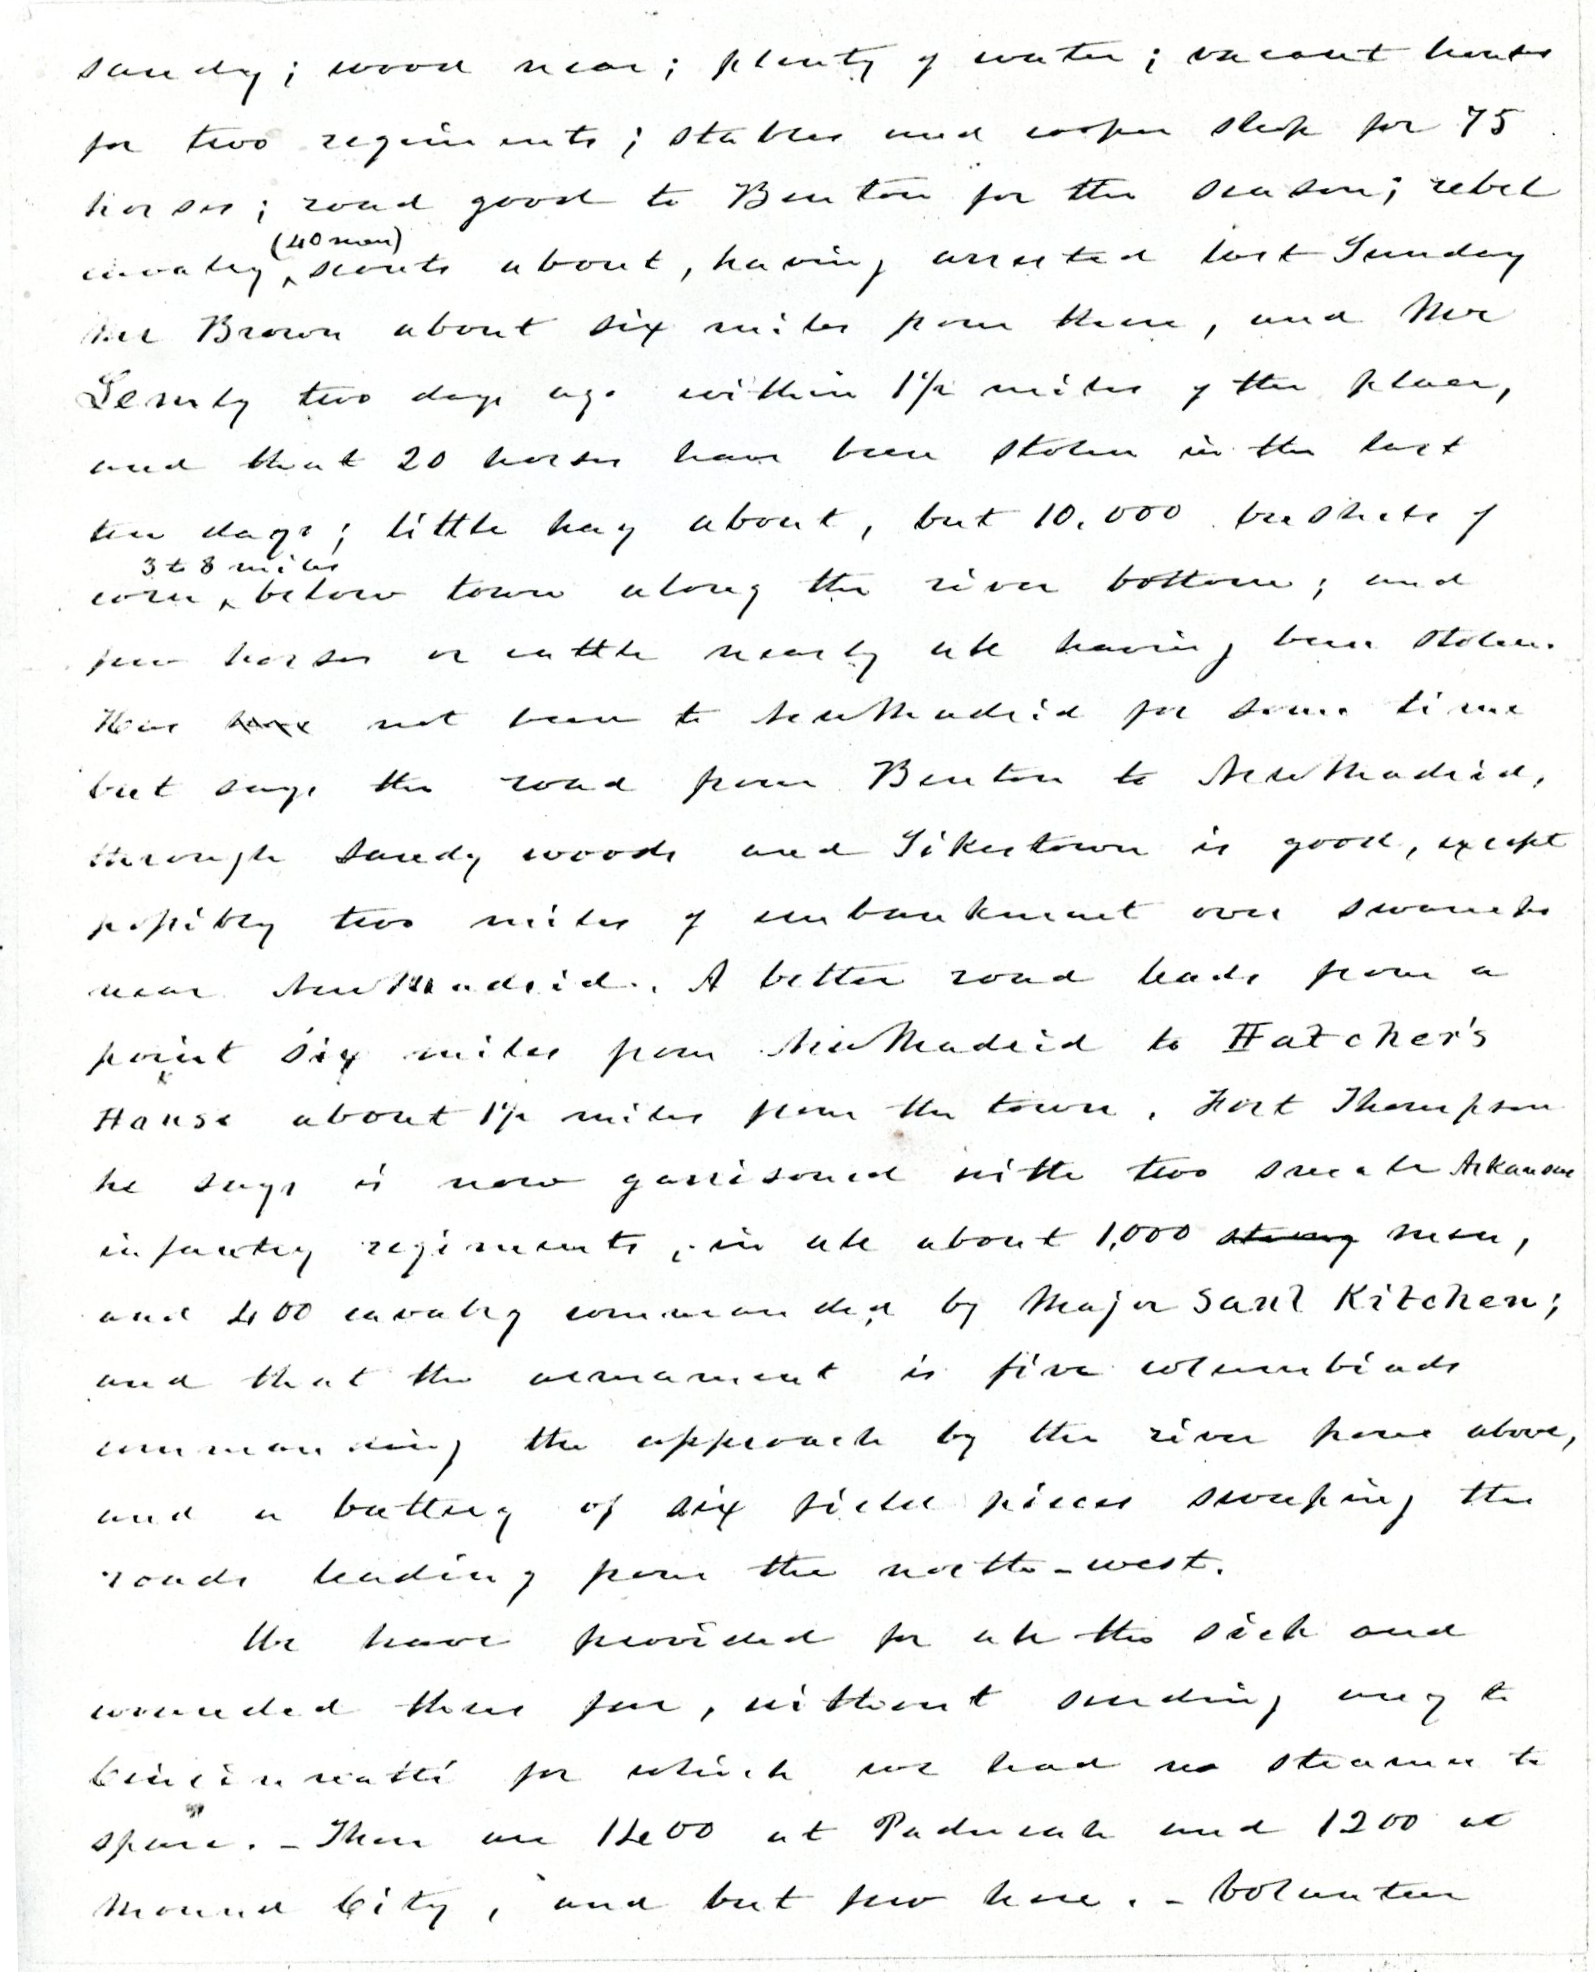 sandy; wood near; plenty of water; vacant houses
for two regiments; stables and cooper shop for 75
horses; road good to Benton for the season; rebel
(40 men)
cavalry ‸ scouts about, having arrested last Sunday
Mr Brown about six miles from there, and Mr
two days ago within 1½ miles of the place,
and that 20 horses have been stolen in the last
ten days; little hay about, but 10,000 bushels of
3 to 8 miles
corn ‸ below town along the river bottom; and
few horses or cattle nearly all having been stolen.
Has have not been to New Madrid for some time
but says the road from Benton to New Madrid,
through sandy woods and Sikestown is good, except
possibly two miles of embankment over swamps
near New Madrid. A better road leads from a
point six miles from New Madrid to Hatcher's
House about 1½ miles from the town. Fort Thompson
he says is now garrisoned with two small Arkansas
infantry regiments, in all about 1,000 strong men,
and 400 cavalry commanded by Major Saul Kitchen;
and that the armament is five columbiads
commanding the approach by the river from above,
and a battery of six field pieces sweeping the
roads leading from the north-west.
We have provided for all the sick and
wounded thus far, without sending any to
Cincinnatti for which we had no steamer to
spare. - There are 1400 at Paducah and 1200 at
Mound City, and but few here. - Volunteer